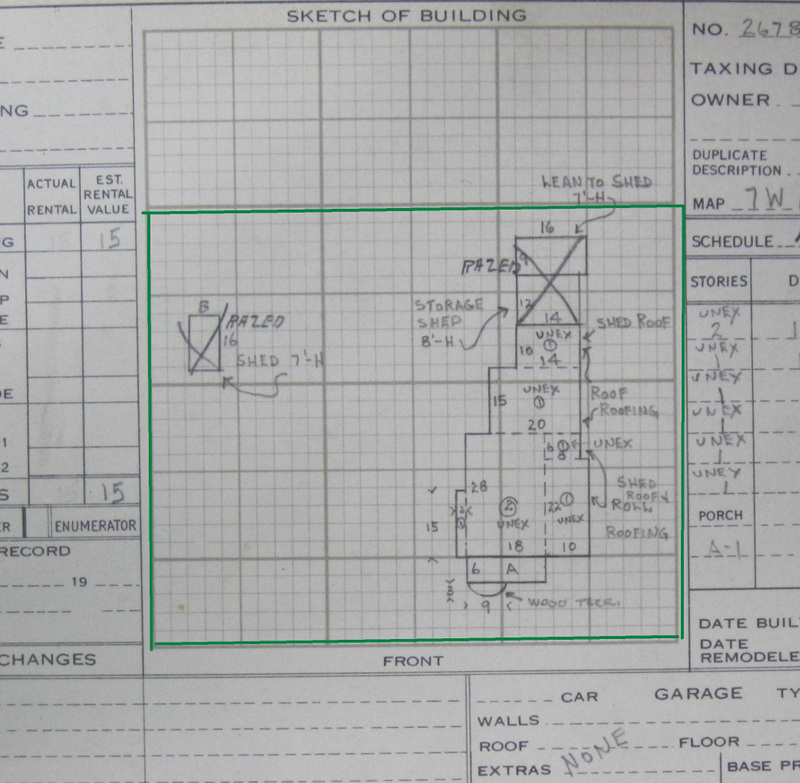 SKETCH OF BUILDING
NO. 2678
TAXING D
OWNER
NG
DUPLICATE
DESCRIPTION
MAP 7W
SCHEDULE
ACTUAL
RENTAL
EST.
RENTAL
VALUE
G 15
N
P
E
DE
1
2
S 15
ER
ENUMERATOR
RECORD
19
CHANGES
LEAN TO SHED
7'-H
16
9
RAZED
12
14
STORAGE
SHED
8'-H
8
RAZED
16
SHED 7'-H
UNEX
1
10
14
SHED ROOF
15
UNEX
1
20
ROOF
ROOFING
6 1
8
UNEX
28
2
UNEX
18
22 1
UNEX
10
15
SHED
ROOF &
ROLL
ROOFING
6 A
9
WOOD TERR.
FRONT
STORIES
D
UNEX
2
UNEX
1
UNEX
1
UNEX
1
UNEX
1
UNEX
1
PORCH
A-1
DATE BUIL
DATE
REMODELE
CAR GARAGE TY
WALLS
ROOF FLOOR
EXTRAS NONE BASE PR